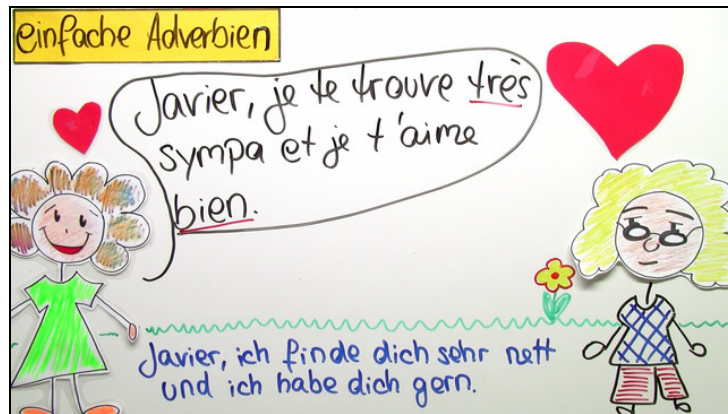 einfache Adverbien
Javier, je te trouve très
sympa et je t'aime
bien.
Javier, ich finde dich sehr nett
und ich habe dich gern.